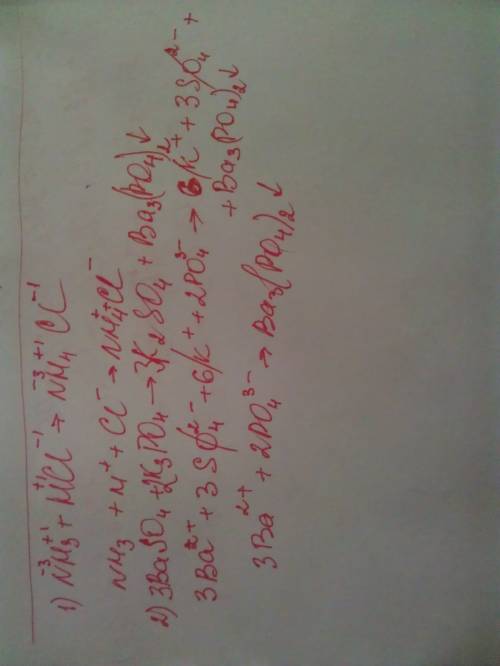 1) N⁻³H₃⁺¹ + H⁺¹Cl⁻¹ → N⁻³H₄⁺¹Cl⁻¹
NH₃ + H⁺ + Cl⁻ → NH₄⁺ + Cl⁻
2) 3BaSO₄ + 2K₃PO₄ → 3K₂SO₄ + Ba₃(PO₄)₂↓
3Ba²⁺ + 3SO₄²⁻ + 6K⁺ + 2PO₄³⁻ → 6K⁺ + 3SO₄²⁻ +
+ Ba₃(PO₄)₂↓
3Ba²⁺ + 2PO₄³⁻ → Ba₃(PO₄)₂↓